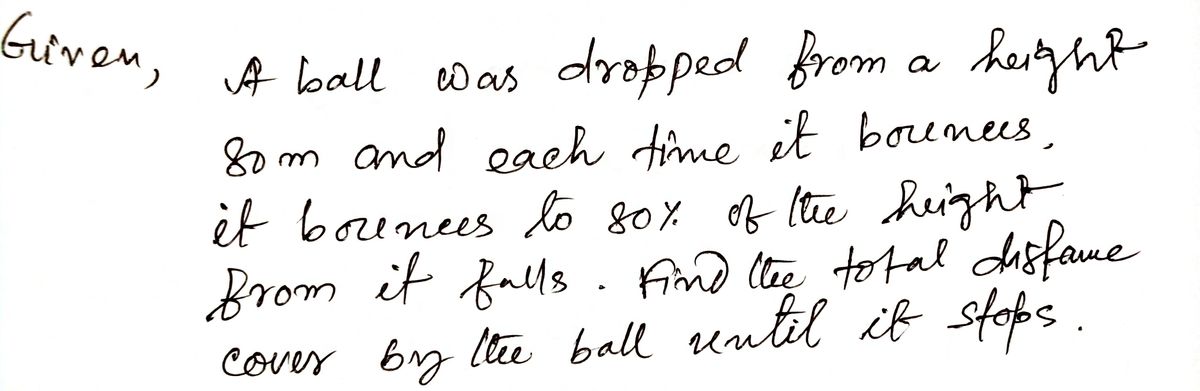 Given, A ball was dropped from a height
80 m and each time it bounces,
it bounces to 80% of the height
from it falls. Find the total distance
cover by the ball until it stops.